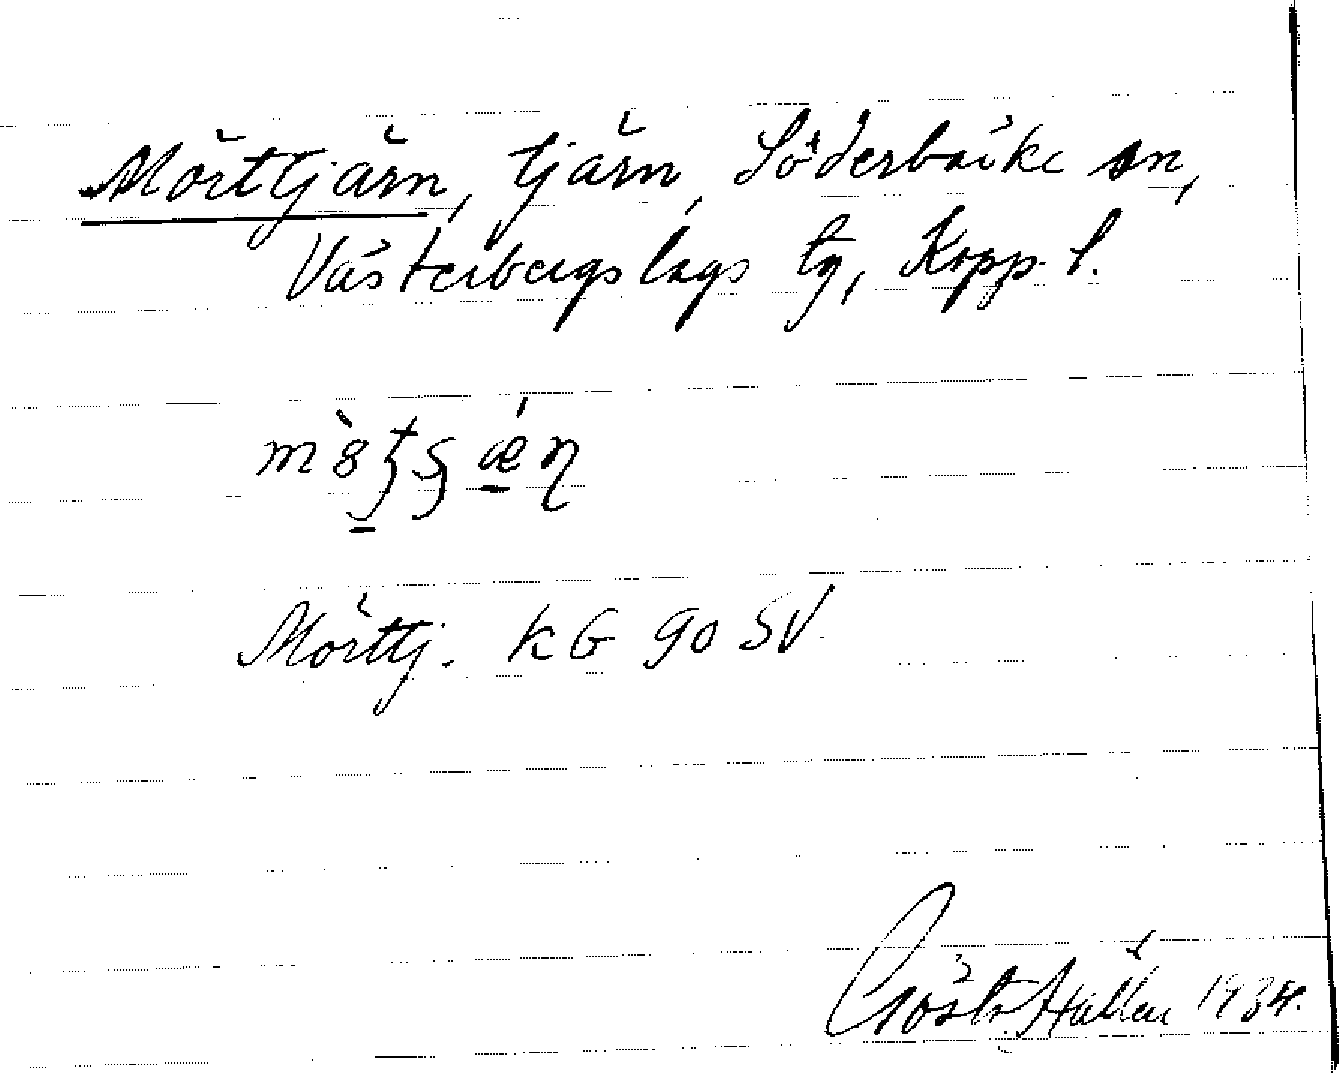 Mörttjärn, tjärn, Söderbärke sn,
Västerbergslags tg, Kopp. l.
Mörttj. KG 90 SV
Gösta Hallén 1934.